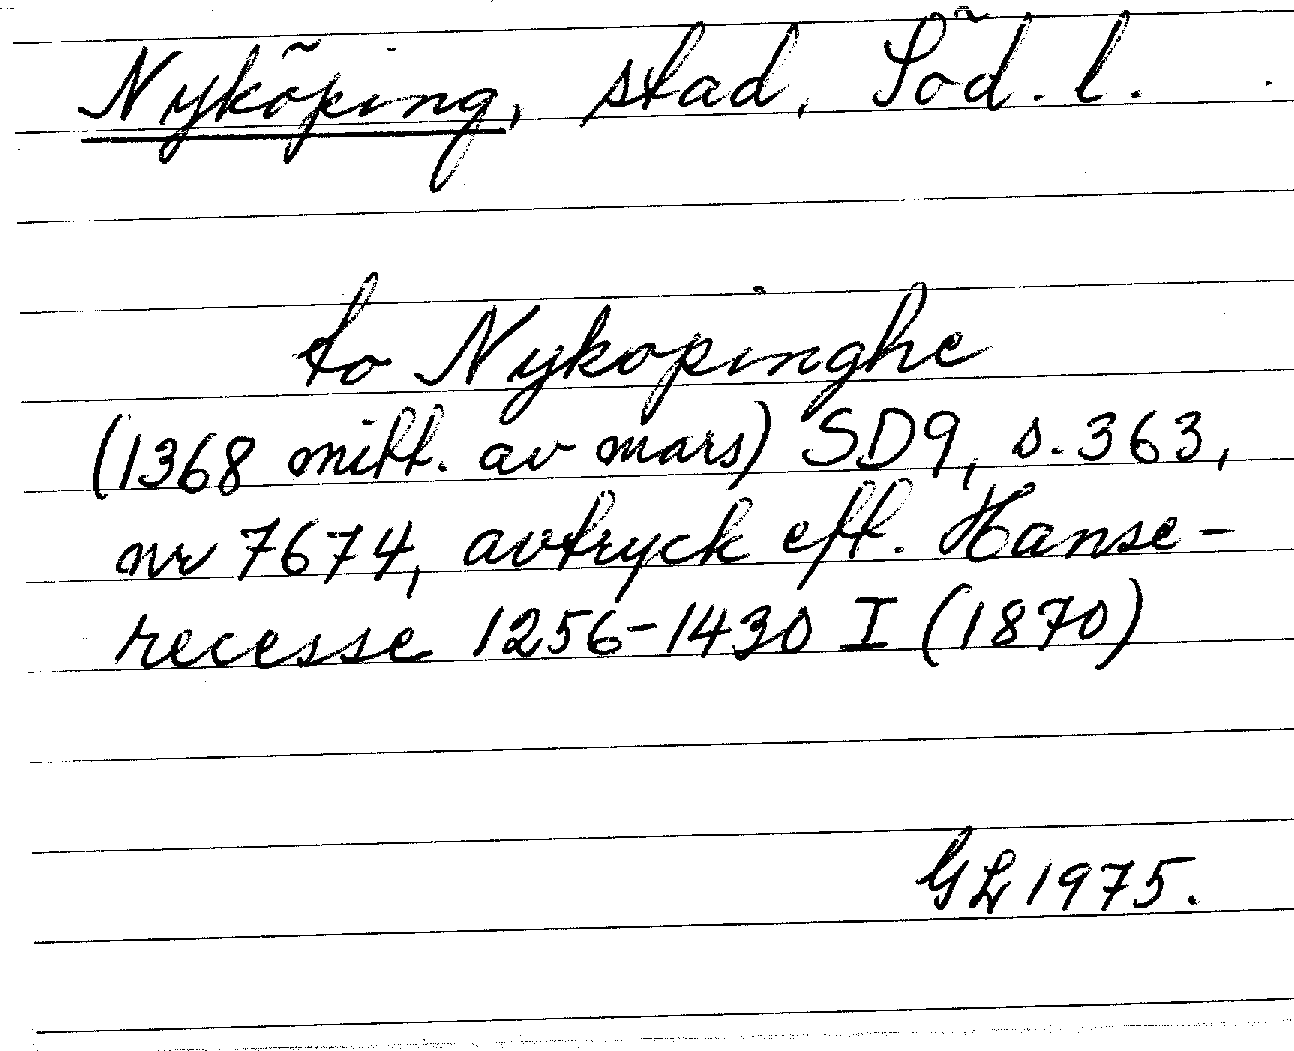 Nyköping, stad, Söd. l.
to Nykopinghe
(1368 mitt. av mars) SD9, s. 363,
nr 7674, avtryck eft. Hanse-
recesse 1256-1430 I (1870)
GL 1975.